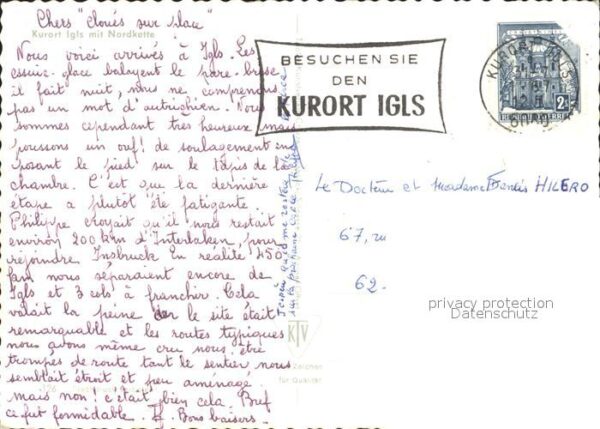 Chers "cloués sur place"
Kurort Igls mit Nordkette
Nous voici arrivés à Igls. Les
essuie-glace balayent le pare-brise,
il fait nuit, nous ne comprenons
pas un mot d'autrichien. Nous
sommes cependant très heureux mais
poussons un ouf! de soulagement en
posant le pied sur le tapis de la
chambre. C'est que la dernière
étape a plutôt été fatigante.
Philippe croyait qu'il nous restait
environ 200 km d'Interlaken, pour
rejoindre Insbruck. En réalité 450
km nous séparaient encore de
Igls et 3 cols à franchir. Cela
valait la peine car le site était
remarquable et les routes typiques
nous avons même cru nous être
trompés de route tant le sentier nous
semblait étroit et peu aménagé
mais non! c'était bien cela Bref
ce fut formidable. Bons baisers.
BESUCHEN SIE
DEN
KURORT IGLS
KURORT IGLS
12
2 S
REPUBLIK ÖSTERREICH
Le Docteur et Madame HILERO
67, ru
62.
privacy protection
Datenschutz
KV
Zeichen
für Qualität